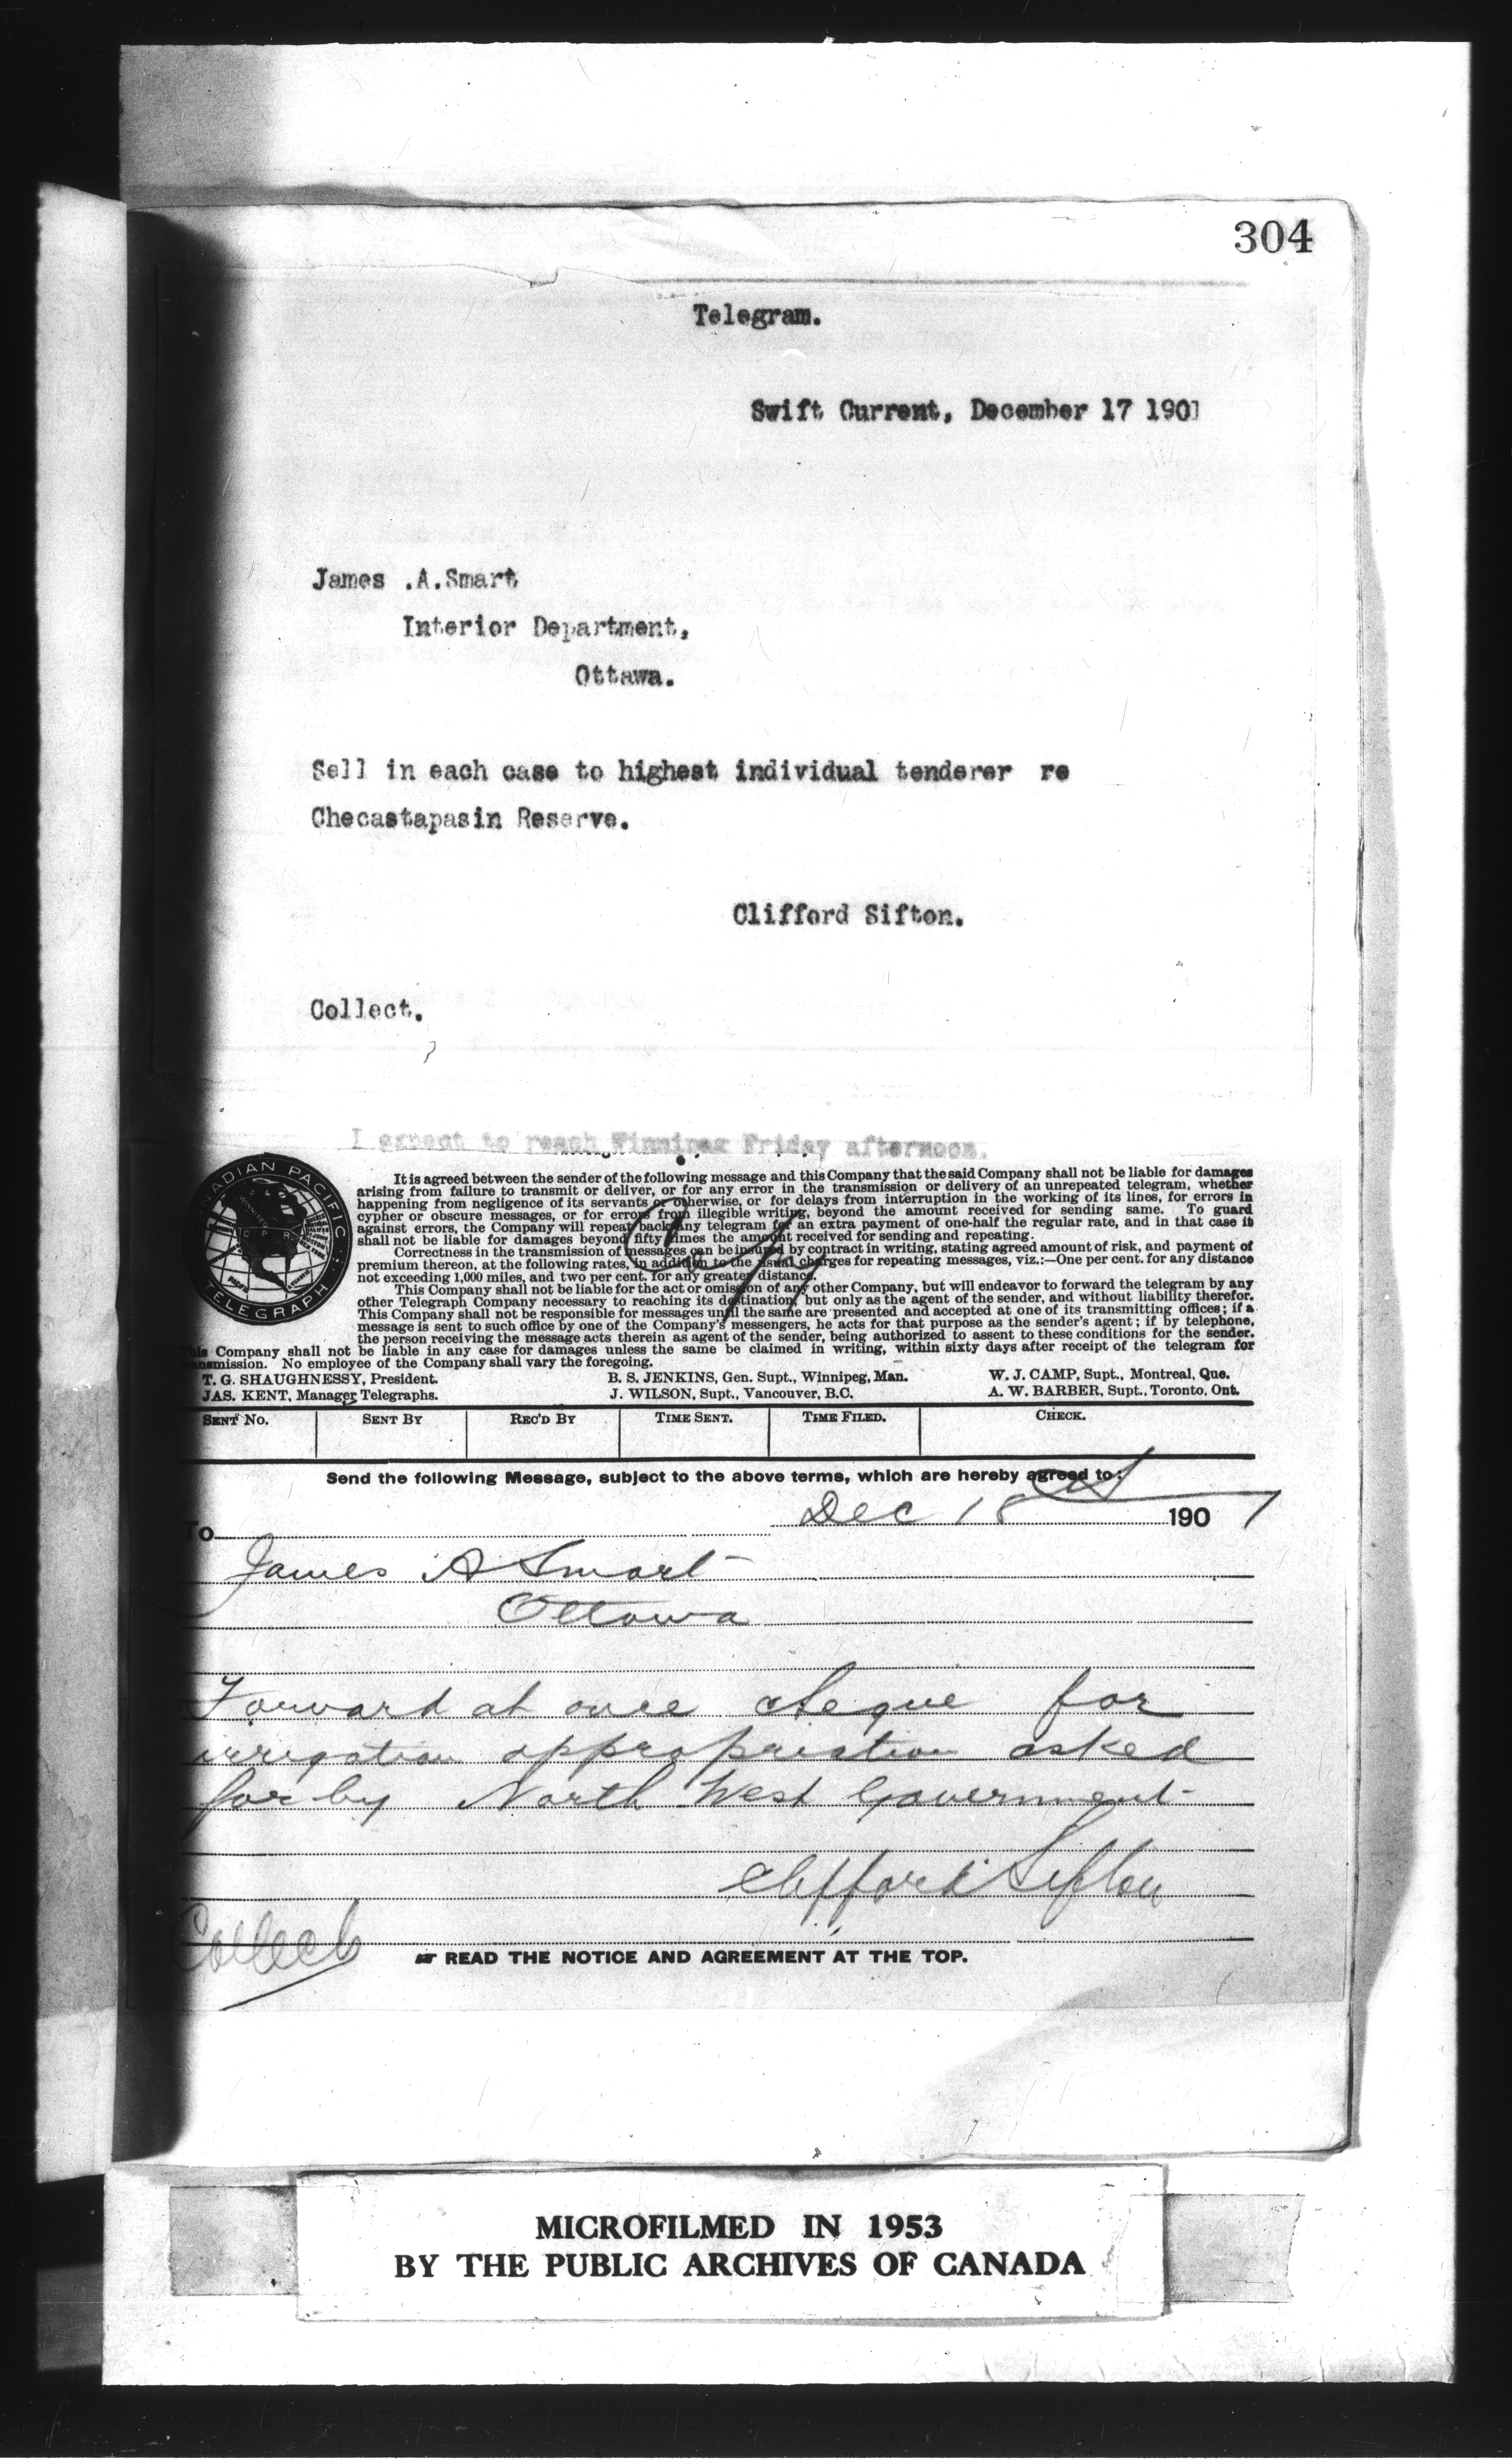 304
Telegram.
Swift Current, December 17 1901
James .A.Smart
Interior Department,
Ottawa.
Sell in each case to highest individual tenderer re
Checastapasin Reserve.
Clifford Sifton.
Collect.
I expect to reach Winnipeg Friday afternoon.
CANADIAN PACIFIC
TELEGRAPH
Copy
It is agreed between the sender of the following message and this Company that the said Company shall not be liable for damages
arising from failure to transmit or deliver, or for any error in the transmission or delivery of an unrepeated telegram, whether
happening from negligence of its servants or otherwise, or for delays from interruption in the working of its lines, for errors in
cypher or obscure messages, or for errors from illegible writing, beyond the amount received for sending same. To guard
against errors, the Company will repeat back any telegram for an extra payment of one-half the regular rate, and in that case it
shall not be liable for damages beyond fifty times the amount received for sending and repeating.
Correctness in the transmission of messages can be insured by contract in writing, stating agreed amount of risk, and payment of
premium thereon, at the following rates, in addition to the usual charges for repeating messages, viz.:—One per cent. for any distance
not exceeding 1,000 miles, and two per cent. for any greater distance.
This Company shall not be liable for the act or omission of any other Company, but will endeavor to forward the telegram by any
other Telegraph Company necessary to reaching its destination, but only as the agent of the sender, and without liability therefor.
This Company shall not be responsible for messages until the same are presented and accepted at one of its transmitting offices; if a
message is sent to such office by one of the Company's messengers, he acts for that purpose as the sender's agent; if by telephone,
the person receiving the message acts therein as agent of the sender, being authorized to assent to these conditions for the sender.
This Company shall not be liable in any case for damages unless the same be claimed in writing, within sixty days after receipt of the telegram for
transmission. No employee of the Company shall vary the foregoing.
T. G. SHAUGHNESSY, President. B. S. JENKINS, Gen. Supt., Winnipeg, Man. W. J. CAMP, Supt., Montreal, Que.
JAS. KENT, Manager Telegraphs. J. WILSON, Supt., Vancouver, B.C. A. W. BARBER, Supt., Toronto, Ont.
SENT NO. SENT BY REC'D BY TIME SENT. TIME FILED. CHECK.
Send the following Message, subject to the above terms, which are hereby agreed to:
Dec 18 1901
To
James A Smart
Ottawa
Forward at once cheque for
irrigation appropriation asked
for by North West Government
Clifford Sifton
Collect
READ THE NOTICE AND AGREEMENT AT THE TOP.
MICROFILMED IN 1953
BY THE PUBLIC ARCHIVES OF CANADA